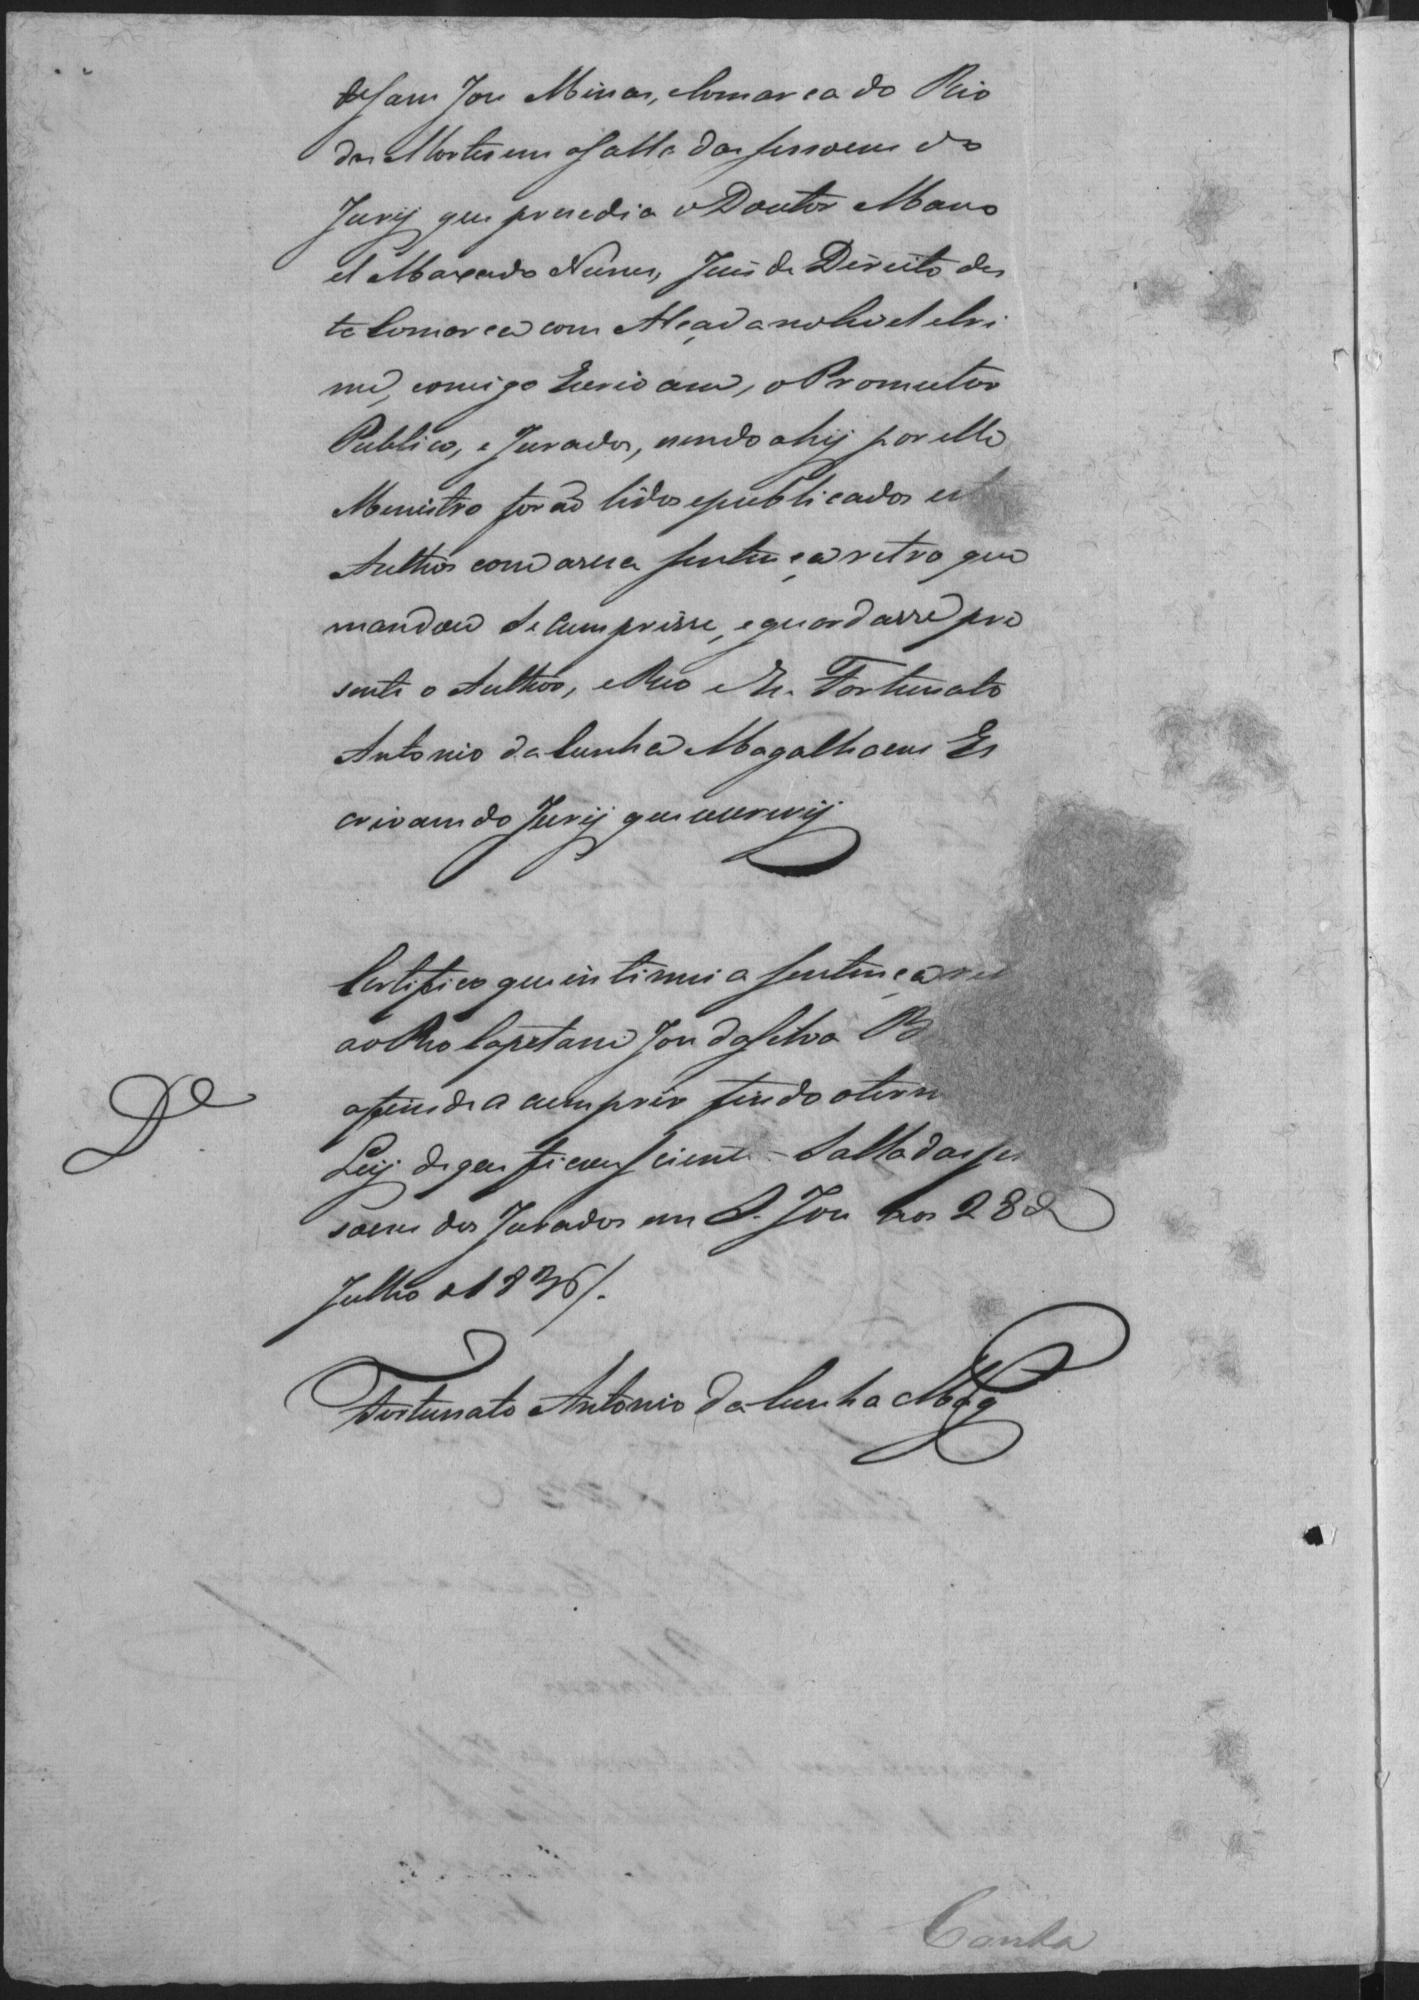 de Sam Joze Minas, Comarca do Rio
das Mortes em a Salla das sessoens do
Jurij que presedia o Doutor Mano
el Maxado Nunes, Juis de Direito des
ta Comarca com Alçada no Civel e Cri
me, comigo Escrivam, o Promutor
Publico, e Jurados, sendo ahij por elle
Menistro foraõ lidos epublicados es
Authos com asua sentença retro que
mandou se cumprisse, eguardasse pre
sente o Author, e Reo e Eu Fortunato
Antonio da Cunha Magalhaens Es
crivam do Jurij que escrevij
Certifico que intimei a sentença re
ao Reo Capitam Joze da Silva B
afim de a cumprir findo o term
Leij de que ficou sciente - Salla das se
soens dos Jurados em S. Joze aos 28 de
Julho d 1836/.
De
Fortunato Antonio da Cunha Mag
Cunha